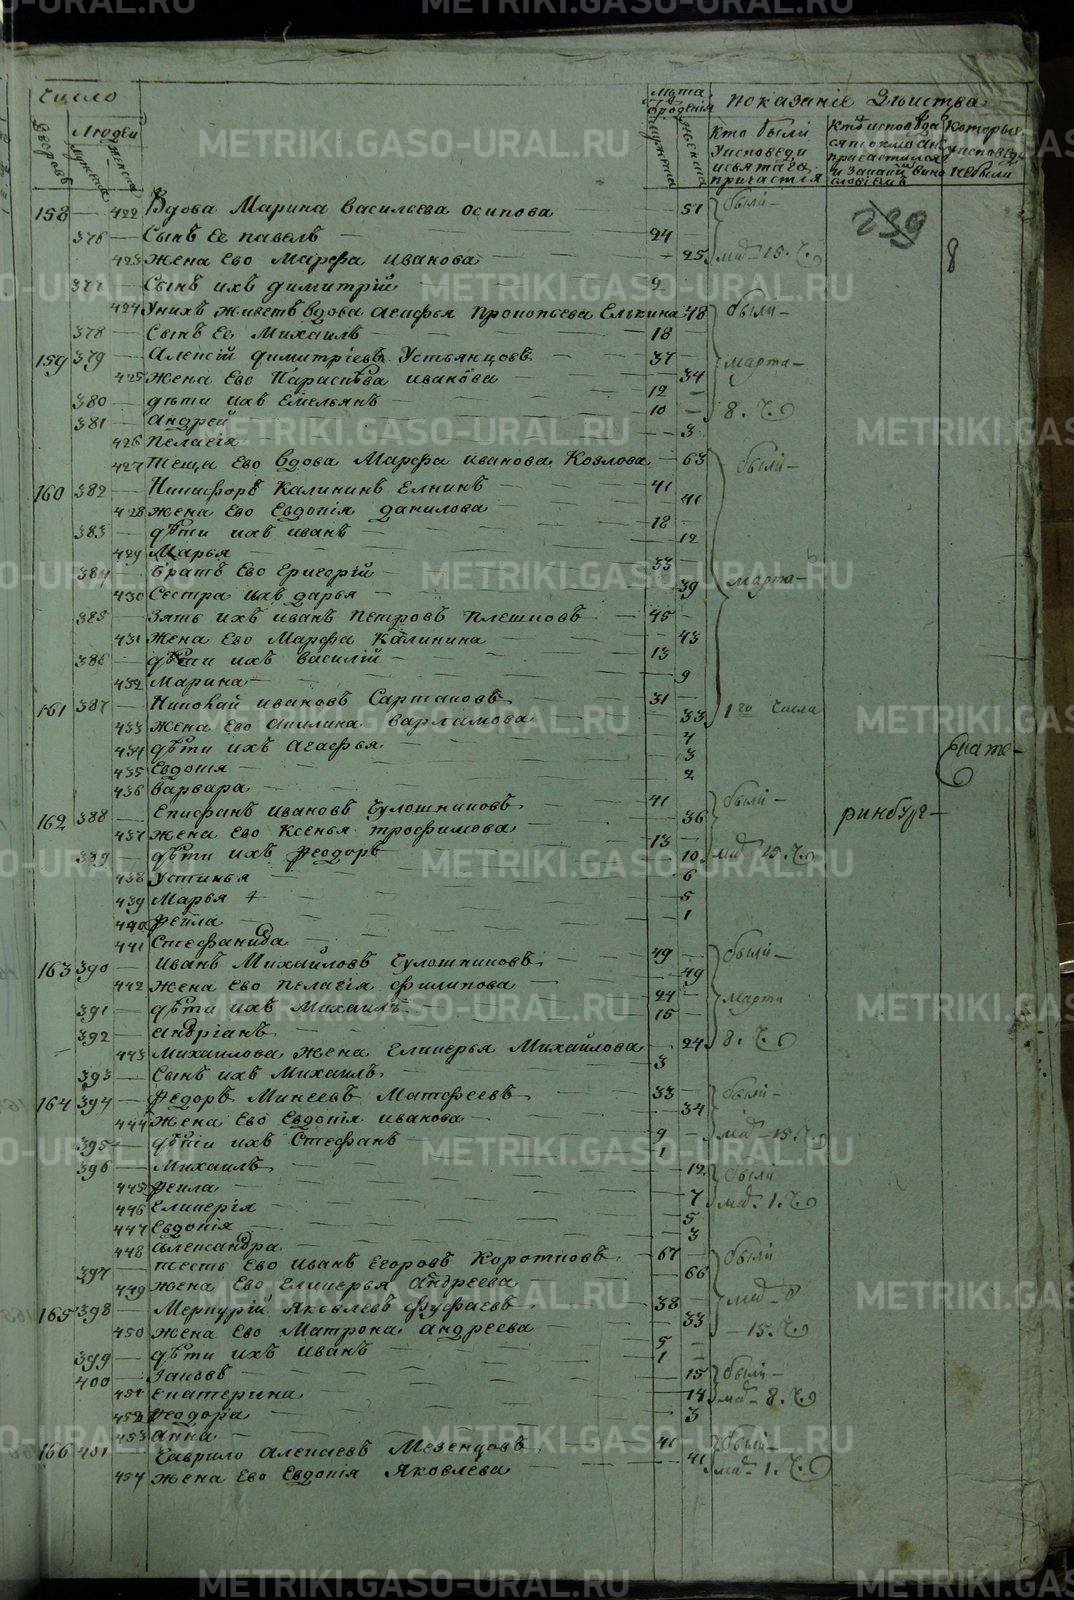 Число
Дворовъ
Людей
мужеска
женска
Лѣта
Ѿ рождения
мужеска
женска
Показаніе Дѣиства
Кто были
у исповеди
и святаго
причастія
Кто исповеда
ся токмо а не
причастился
и за каким вино
словіемъ
Которые
у исповеди
не были
158 — 422 Вдова Марина Васильева Осипова — 51 были —
239
8
376 — Сынъ Ее павелъ — 24
423 Жена Ево Марфа Иванова — 25 мар. 15. ч.
377 — Сынъ ихъ димитрій — 9
424 У нихъ живетъ вдова Агафья Прокопьева Елькина 48 были —
378 — Сынъ Ее Михаилъ — 18
159 379 — Алексій димитріевъ Устьянцовъ — 37 марта —
425 Жена Ево Параскѣва Иванова — 34
380 — дѣти ихъ Емельянъ — 12
381 — Андрей — 10 8. ч.
426 Пелагія — 3
427 Теща Ево вдова Марфа Иванова Козлова — 63 были —
160 382 — Никифоръ Калининъ Елкинъ — 41
428 Жена Ево Евдокія данилова — 41
383 — дѣти ихъ Иванъ — 18
429 Марья — 12
384 — братъ Ево Григорій — 33
430 Сестра ихъ дарья — 39 марта —
385 — Зять ихъ Иванъ Петровъ Плешковъ — 45
431 Жена Ево Марфа Калинина — 43
386 — дѣти ихъ Василій — 13
432 Марина — 9
161 387 — Николай Ивановъ Сартаковъ — 31
433 Жена Ево Акилина Варламова — 33 1го числа
434 дѣти ихъ Агафья — 7
435 Евдокія — 3
436 Варвара — 2
Екате-
162 388 — Епифанъ Ивановъ Чулошниковъ — 41 были —
ринбург-
437 Жена Ево Ксенья Трофимова — 36
389 — дѣти ихъ Феодоръ — 13
438 Устинья — 10 мар. 15. ч.
439 Марья + — 6
440 Фекла — 5
441 Стефанида — 1
163 390 — Иванъ Михайловъ Чулошниковъ — 49 были —
442 Жена Ево Пелагія Филипова — 49
391 — дѣти ихъ Михаилъ — 24 марта
392 — Андріанъ — 15
443 Михаилова Жена Гликерья Михайлова — 24 8. ч.
393 — Сынъ ихъ Михаилъ — 3
164 394 — Федоръ Минеевъ Матфеевъ — 33 были —
444 Жена Ево Евдокія Иванова — 34
395 — дѣти ихъ Стефанъ — 9 мар. 15. ч.
396 — Михаилъ — 1
445 Фекла — 12 были
446 Гликерія — 7 мар. 1. ч.
447 Евдокія — 5
448 Александра — 3
397 — тесть Ево Иванъ Егоровъ Коротковъ — 67 были
449 Жена Ево Гликерья Андреева — 66
165 398 — Меркурій Яковлевъ Фуфаевъ — 38
450 Жена Ево Матрона Андреева — 33 — 15. ч.
399 — дѣти ихъ Иванъ — 5
400 — Іаковъ — 1
451 Екатерина — 15 были —
452 Феодора — 14 мар. 8. ч.
453 Анна — 3
166 401 — Гаврило Алексеевъ Мезенцовъ — 41 были —
454 Жена Ево Евдокія Яковлева — 41 мар. 1. ч.
METRIKI.GASO-URAL.RU